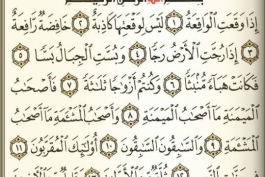 بِسْمِ اللَّهِ الرَّحْمَٰنِ الرَّحِيمِ
إِذَا وَقَعَتِ الْوَاقِعَةُ ١ لَيْسَ لِوَقْعَتِهَا كَاذِبَةٌ ٢ خَافِضَةٌ رَّافِعَةٌ
٣ إِذَا رُجَّتِ الْأَرْضُ رَجًّا ٤ وَبُسَّتِ الْجِبَالُ بَسًّا ٥
فَكَانَتْ هَبَاءً مُّنبَثًّا ٦ وَكُنتُمْ أَزْوَاجًا ثَلَاثَةً ٧ فَأَصْحَابُ
الْمَيْمَنَةِ مَا أَصْحَابُ الْمَيْمَنَةِ ٨ وَأَصْحَابُ الْمَشْأَمَةِ مَا أَصْحَابُ
الْمَشْأَمَةِ ٩ وَالسَّابِقُونَ السَّابِقُونَ ١٠ أُولَٰئِكَ الْمُقَرَّبُونَ ١١